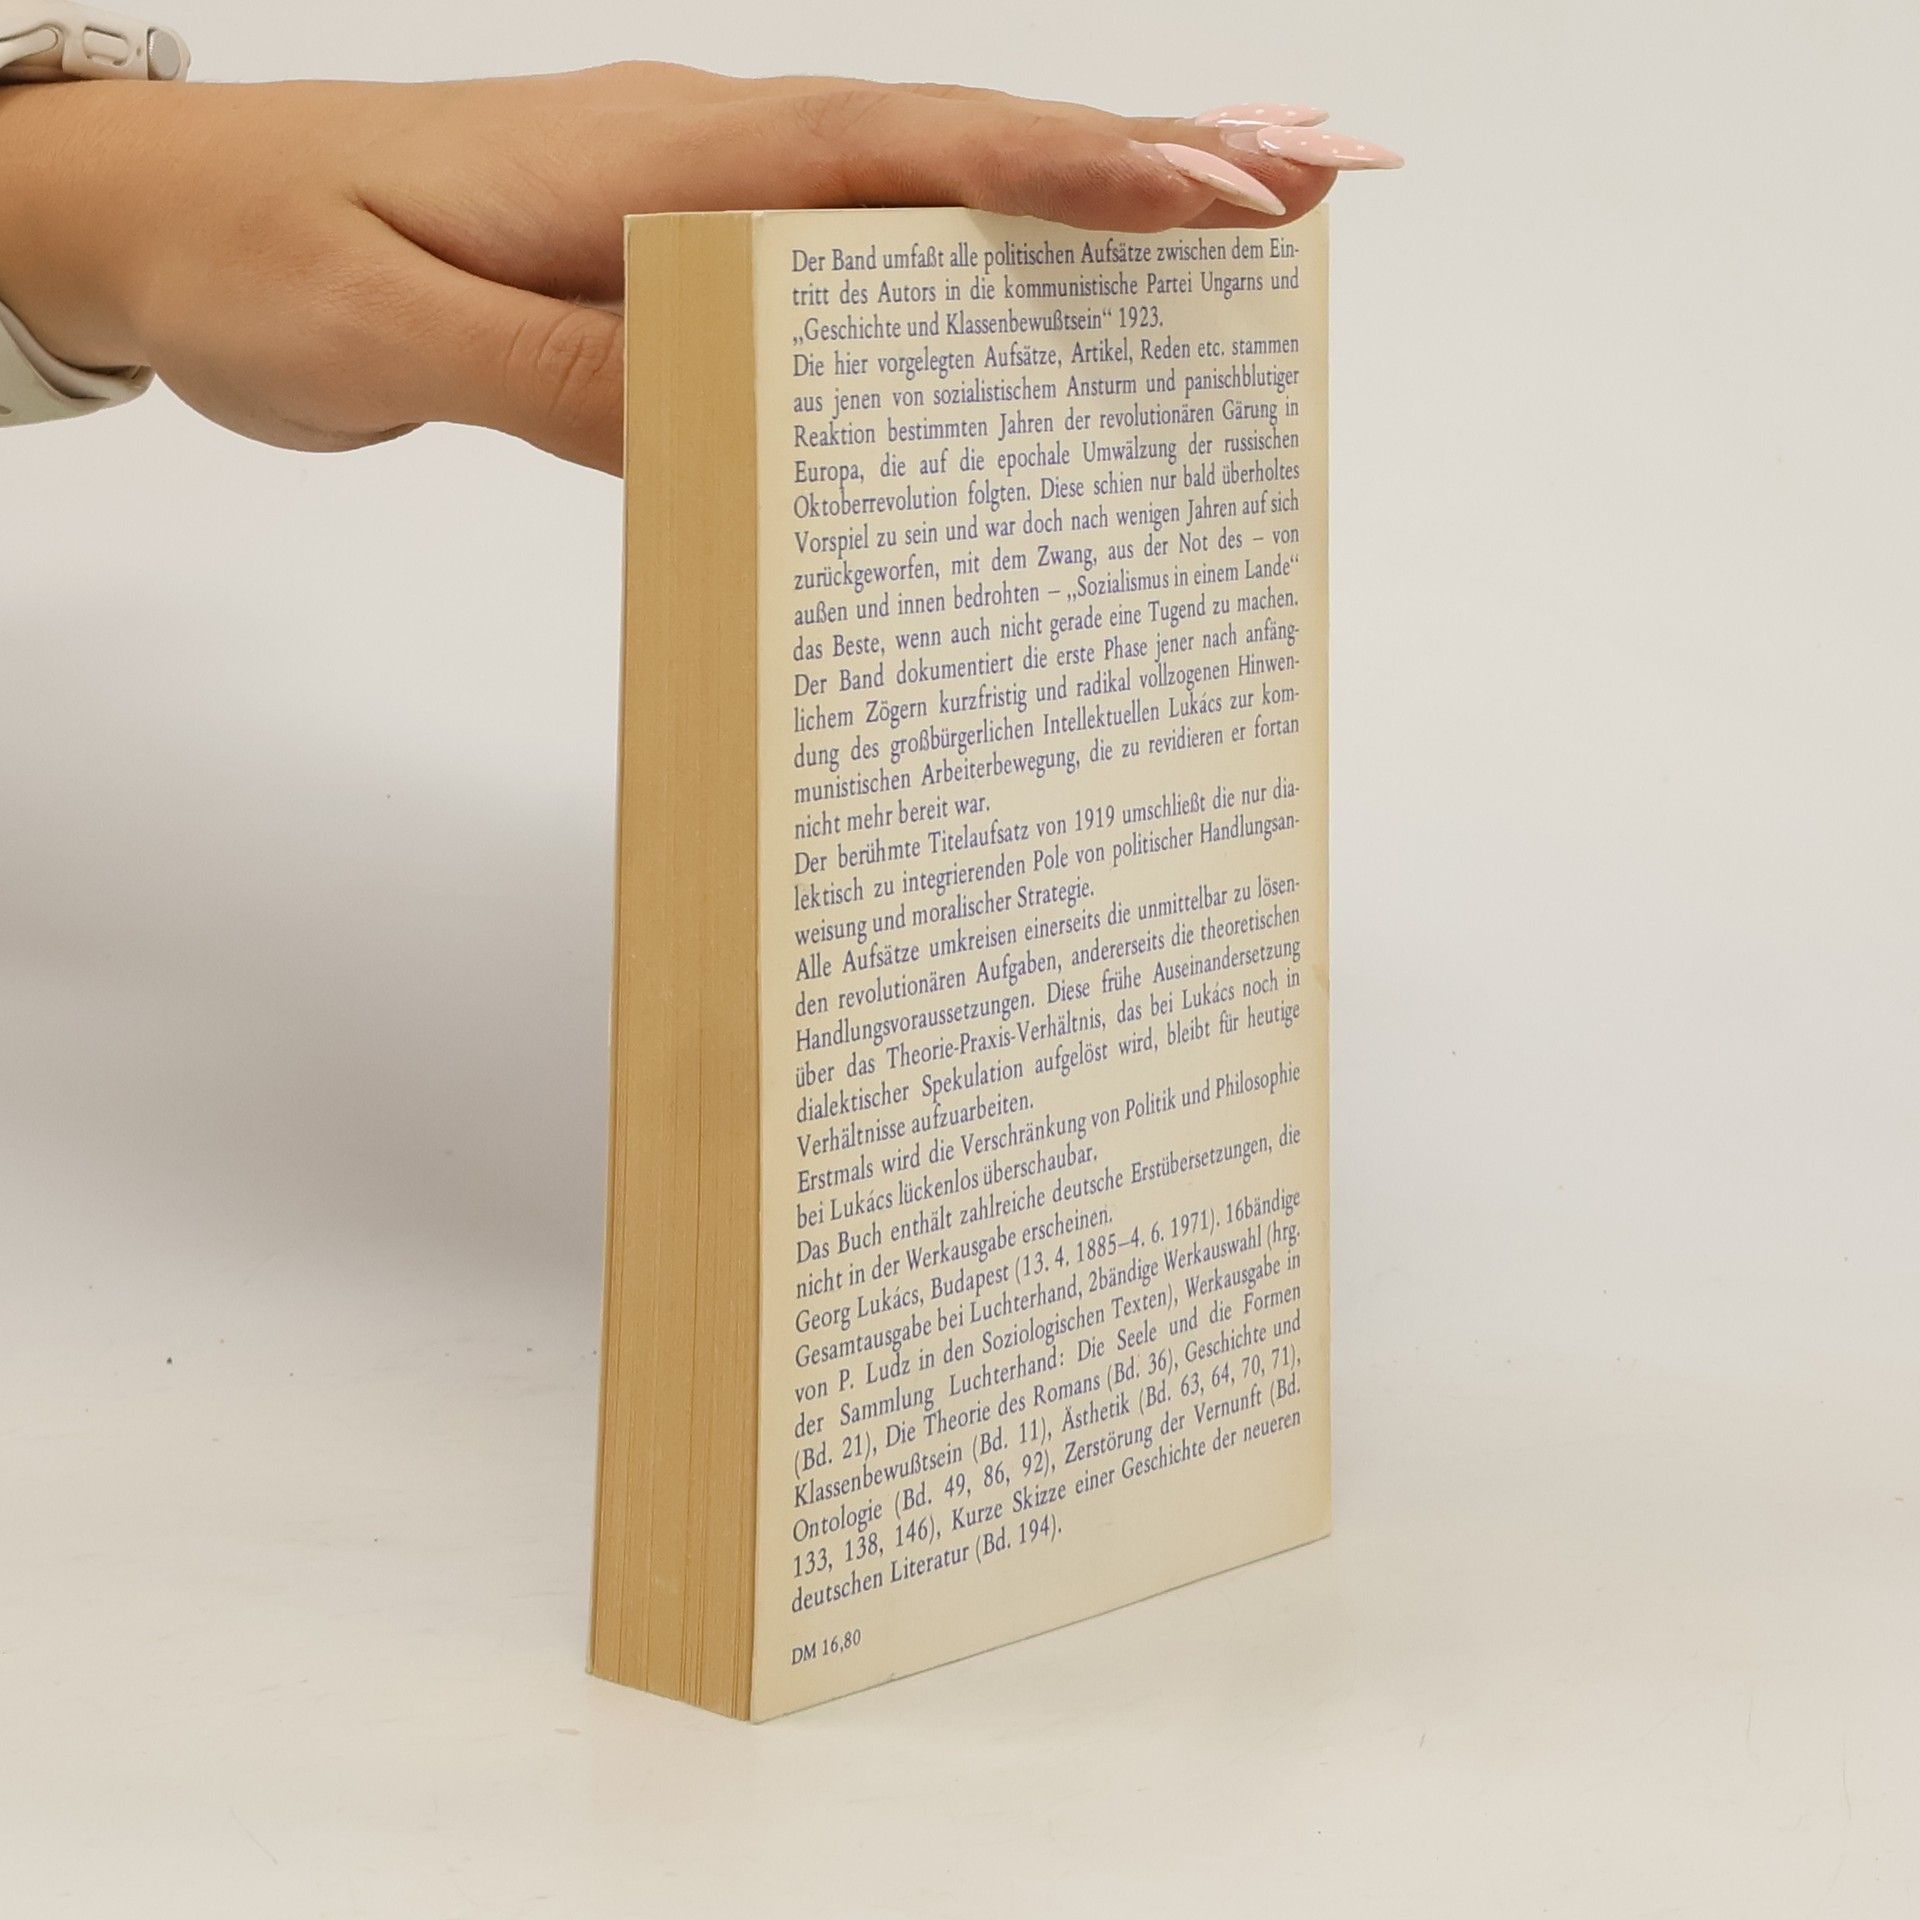 Der Band umfaßt alle politischen Aufsätze zwischen dem Ein-
tritt des Autors in die kommunistische Partei Ungarns und
„Geschichte und Klassenbewußtsein“ 1923.
Die hier vorgelegten Aufsätze, Artikel, Reden etc. stammen
aus jenen von sozialistischem Ansturm und panischblutiger
Reaktion bestimmten Jahren der revolutionären Gärung in
Europa, die auf die epochale Umwälzung der russischen
Oktoberrevolution folgten. Diese schien nur bald überholtes
Vorspiel zu sein und war doch nach wenigen Jahren auf sich
zurückgeworfen, mit dem Zwang, aus der Not des – von
außen und innen bedrohten – „Sozialismus in einem Lande“
das Beste, wenn auch nicht gerade eine Tugend zu machen.
Der Band dokumentiert die erste Phase jener nach anfäng-
lichem Zögern kurzfristig und radikal vollzogenen Hinwen-
dung des großbürgerlichen Intellektuellen Lukács zur kom-
munistischen Arbeiterbewegung, die zu revidieren er fortan
nicht mehr bereit war.
Der berühmte Titelaufsatz von 1919 umschließt die nur dia-
lektisch zu integrierenden Pole von politischer Handlungsan-
weisung und moralischer Strategie.
Alle Aufsätze umkreisen einerseits die unmittelbar zu lösen-
den revolutionären Aufgaben, andererseits die theoretischen
Handlungsvoraussetzungen. Diese frühe Auseinandersetzung
über das Theorie-Praxis-Verhältnis, das bei Lukács noch in
dialektischer Spekulation aufgelöst wird, bleibt für heutige
Verhältnisse aufzuarbeiten.
Erstmals wird die Verschränkung von Politik und Philosophie
bei Lukács lückenlos überschaubar.
Das Buch enthält zahlreiche deutsche Erstübersetzungen, die
nicht in der Werkausgabe erscheinen.
Georg Lukács, Budapest (13. 4. 1885–4. 6. 1971). 16bändige
Gesamtausgabe bei Luchterhand, 2bändige Werkauswahl (hrg.
von P. Ludz in den Soziologischen Texten), Werkausgabe in
der Sammlung Luchterhand: Die Seele und die Formen
(Bd. 21), Die Theorie des Romans (Bd. 36), Geschichte und
Klassenbewußtsein (Bd. 11), Ästhetik (Bd. 63, 64, 70, 71),
Ontologie (Bd. 49, 86, 92), Zerstörung der Vernunft (Bd.
133, 138, 146), Kurze Skizze einer Geschichte der neueren
deutschen Literatur (Bd. 194).
DM 16,80